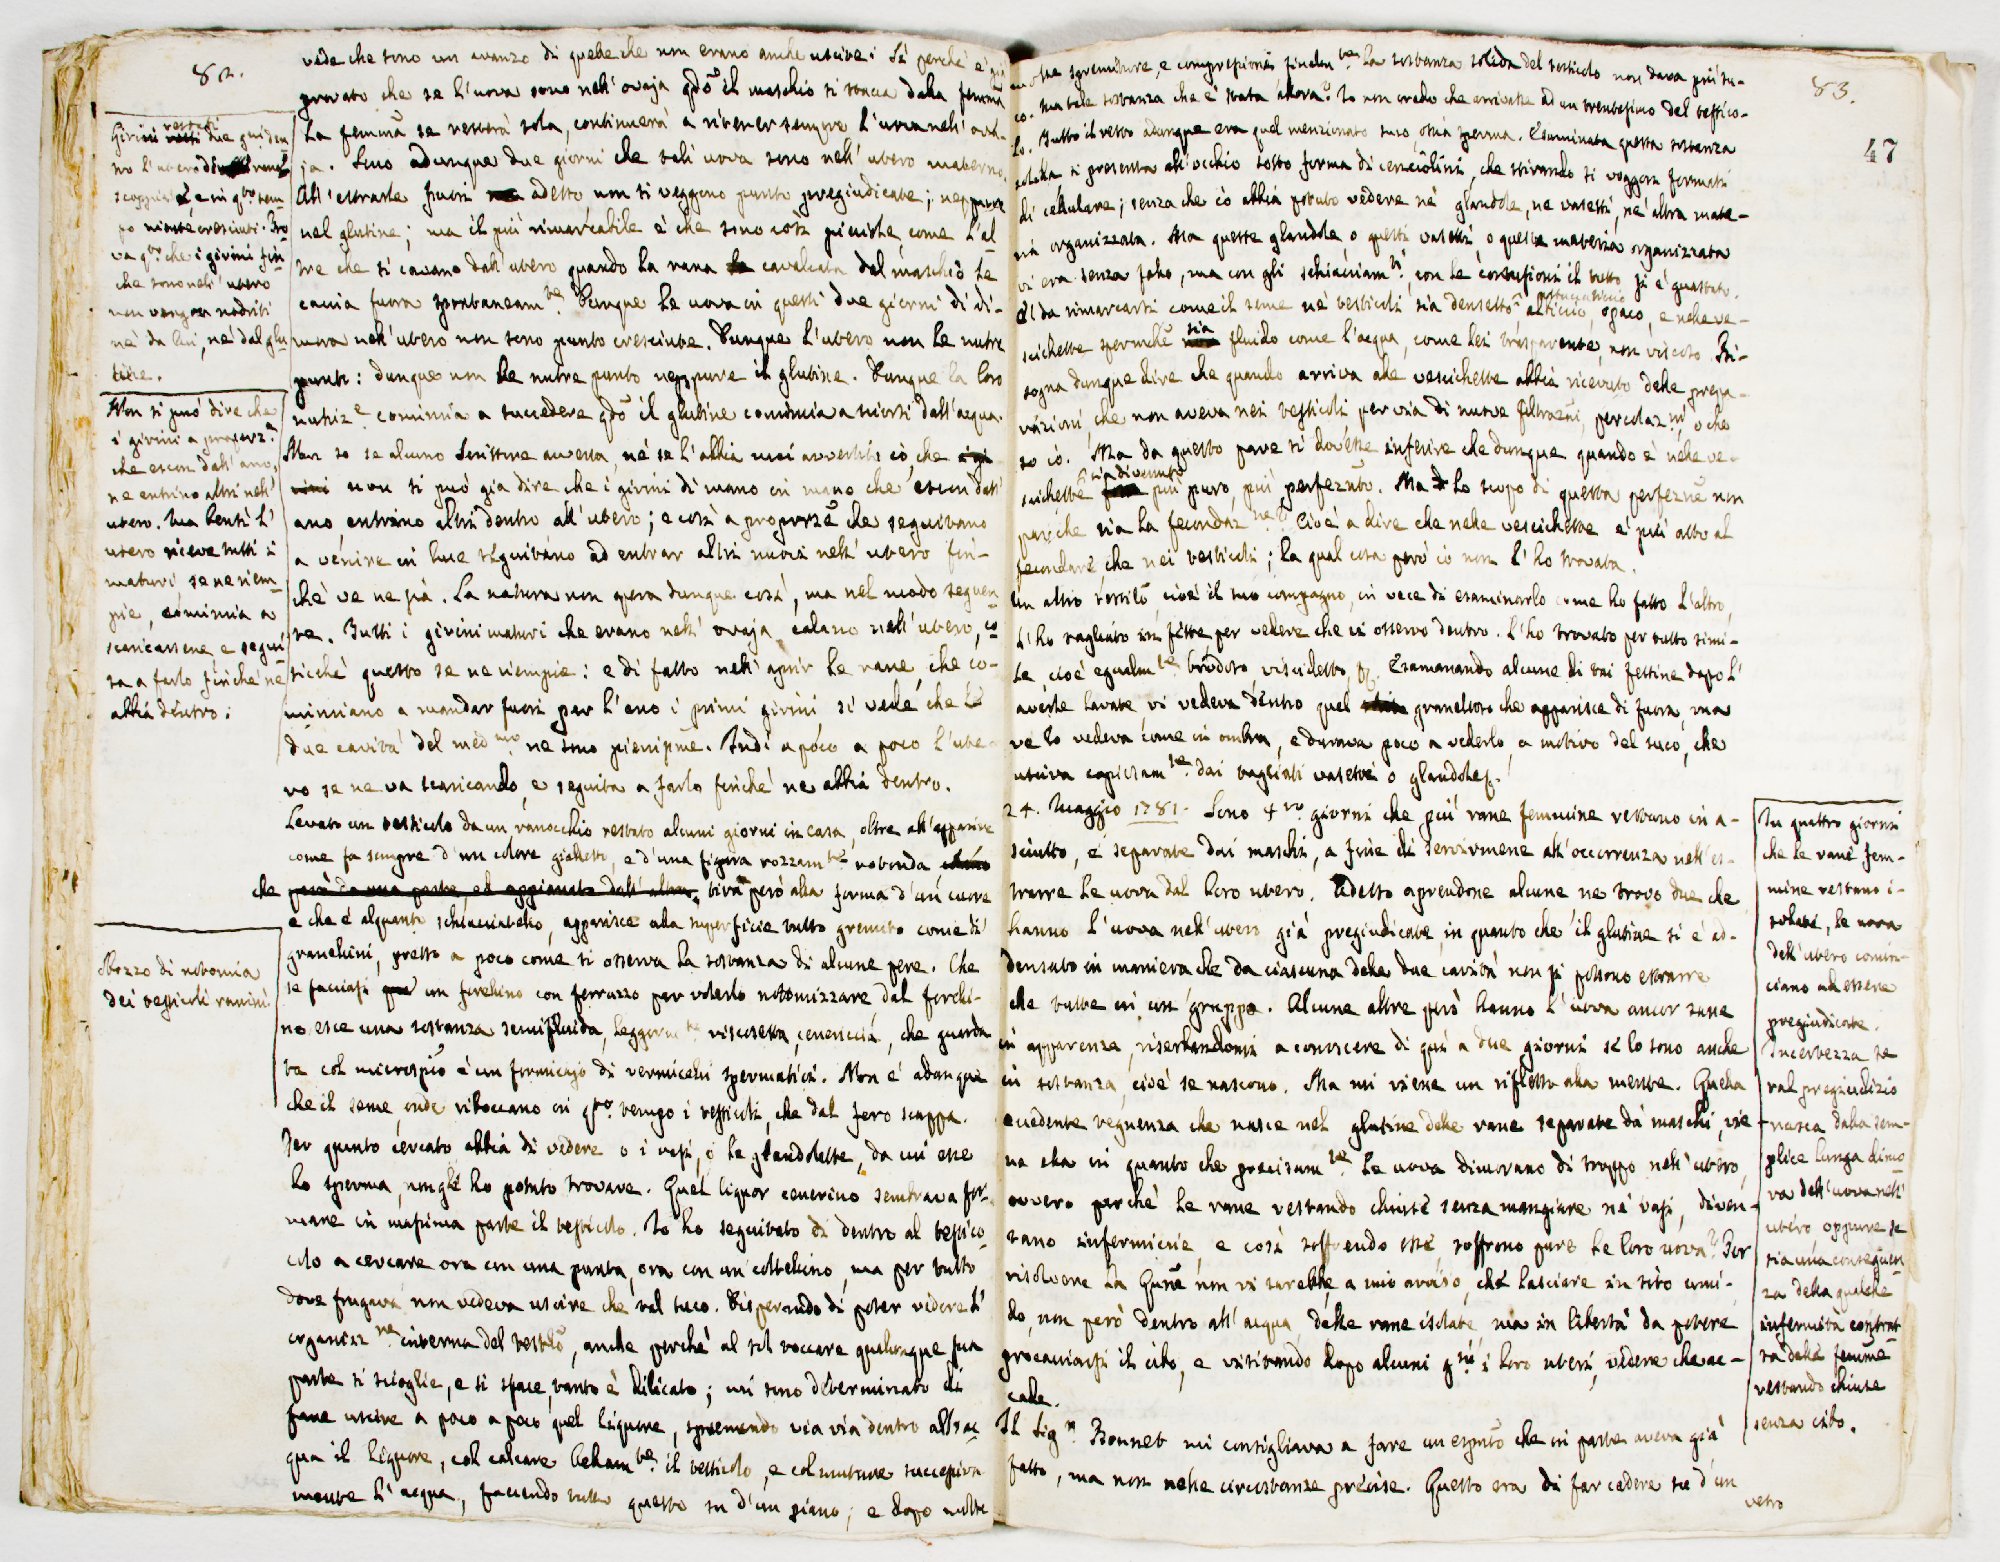 82.
vede che sono un avanzo di quelle che non erano anche uscite. Si perché è già
provato che se l'uova sono nell'ovaja qdo il maschio si stacca dalla femma
La femma se resterà sola, continuerà a ritener sempre l'uova nell'ova-
ja. Sono adunque due giorni che tali uova sono nell'utero materno.
All'estrarle fuori adesso non si veggono punto pregiudicate; neppure
nel glutine; ma il più rimarcabile è che sono così picciole, come l'al
tre che si cavano dall'utero quando la rana cavalcata dal maschio le
caccia fuora spontaneamte. Dunque le uova in questi due giorni di di-
mora nell'utero non sono punto cresciute. Dunque l'utero non le nutre
punto: dunque non le nutre punto neppure il glutine. Dunque la loro
nutrize comincia a succedere qdo il glutine comincia a nutrirsi dall'acqua.
Non so se alcuno Scrittore avverta, né se l'abbia mai avvertito io, che i gi
rini non si può già dire che i girini di mano in mano che escon dall'
ano entrino altri dentro all'utero; e così a proporze che seguitano
a venire in luce seguitano ad entrar altri nuovi nell'utero fin-
ché ve ne sia. La natura non opera dunque così, ma nel modo seguen
te. Tutti i girini maturi che erano nell'ovaja calano nell'utero, co
sicché questo se ne riempie: e di fatto nell'aprir le rane, che co-
minciano a mandar fuori per l'ano i primi girini, si vede che le
due cavità del medmo ne sono pienissime. Indi a poco a poco l'ute-
ro se ne va scaricando, e seguita a farlo finché ne abbia dentro.
Levato un testicolo da un ranocchio restato alcuni giorni in casa, oltre all'apparire
come fa sempre d'un colore gialletto, e d'una figura rozzamte rotonda
che però da una parte, ed appianata dall'altra, tira però alla forma d'un cuore
e che è alquanto schiacciatello, apparisce alla superficie tutto gremito come di
granellini, presso a poco come si osserva la sostanza di alcune pere. Che
se facciasi un forellino con ferruzzo per volerlo notomizzare, dal forelli-
no esce una sostanza semifluida, leggermte viscosetta, cenericcia, che guarda
ta col microscopio è un formicajo di vermicelli spermatici. Non è adunque
che il seme, onde riboccano in qto tempo i testicoli, che dal foro scappa.
Per quanto cercato abbia di vedere o i vasi, o le glandolette, da cui esce
lo sperma, non gli ho potuto trovare. Quel liquor cenerino sembrava for-
mare in massima parte il testicolo. Io ho seguitato di dentro al testico
colo a cercare ora con una punta, ora con un coltellino, ma per tutto
dove frugava non vedeva uscire che tal suco. Disperando di poter vedere l'
organizzne interna del testilo, anche perché al sol toccare qualunque sua
parte si scioglie, e si sface, tanto è dilicato; mi sono determinato di
fare uscire a poco a poco quel liquore, spremendo via via dentro all'ac
qua il liquore, col calcare bellamte il testicolo, e col mutare successiva
mente l'acqua, facendo tutto questo su d'un piano; e dopo molte
Girini restati due gni den-
tro l'utero
scoppiati, e in qto tem-
po niente cresciuti. Pro
va qto che i girini fin
che sono nell'utero
non vengon nodriti
né da lui, né dal glu
tine.
Non si può dire che
i girini a proporze
che escon dall'ano,
ne entrino altri nell'
utero. Ma bensì l'
utero riceve tutti i
maturi, se ne riem-
pie, comincia a
scaricarsene, e segui
ta a farlo finché ne
abbia dentro.
Abozzo di notomia
dei testicoli ranini.
83.
47
altre spremiture, e compressioni, finalmte la sostanza solida del testicolo non dava più su-
co. Ma tale sostanza che è stata allora? Io non credo che arrivasse ad un trentesimo del testico-
lo. Tutto il resto adunque era quel menzionato suco, ossia sperma. Esaminata questa sostanza
solida si presenta all'occhio sotto forma di cenciolini, che stirando si veggon formati
di cellulare; senza che io abbia potuto vedere né glandole, né vasetti, né altra mate-
ria organizzata. Ma queste glandole o questi vasetti, o questa materia organizzata
vi era senza fallo, ma con gli schiacciamti, con le contusioni il tutto si è guastato.
È da rimarcarsi come il seme ne' testicoli sia densetto, alticcio, opaco, e nelle ve-
scichette spermche sia fluido come l'acqua, come lei trasparente, non viscoso. Bi-
sogna dunque dire che quando arriva alle vescichette abbia ricevuto delle prepa-
razioni, che non aveva nei testicoli per via di nuove feltrazni, percolazni, o che
so io. Ma da questo pare si dovesse inferire che dunque quando è nelle ve-
scichette sia divenuto più puro, più perfeznto. Ma lo scopo di questa perfezne non
par che sia la fecondazne? Cioè a dire che nelle vescichette è più atto al
fecondare, che nei testicoli; la qual cosa però io non l'ho trovata.
Un altro testilo, cioè il suo compagno, in vece di esaminarlo come ho fatto l'altro,
l'ho tagliato in fette per vedere che ci osservo dentro. L'ho trovato per tutto simi-
le, cioè egualmte brodoso, viscidetto. Esaminando alcune di tai fettine dopo l'
averle lavate, vi vedeva dentro quel granelloso che apparisce di fuora, ma
ve lo vedeva come in ombra, e durava poco a vederlo, a motivo del suco, che
usciva copiosamte dai tagliati vasetti o glandole.
24. Maggio 1781. Sono 4ro giorni che più rane femmine restano in a-
sciutto, e separate dai maschi, a fine di servirmene all'occorrenza nell'es-
trarre le uova dal loro utero. Adesso aprendone alcune ne trovo due che
hanno l'uova nell'utero già pregiudicate in quanto che il glutine si è ad-
densato in maniera che da ciascuna delle due cavità non si possono estrarre
che tutte in un gruppo. Alcune altre però hanno l'uova ancor sane
in apparenza, riserbandomi a conoscere di qui a due giorni se lo sono anche
in sostanza, cioè se nascono. Ma mi viene un riflesso alla mente. Quella
eccedente tegnenza che nasce nel glutine delle rane separate da' maschi, vie
ne ella in quanto che precisamte le uova dimorano di troppo nell'utero,
ovvero perché le rane restando chiuse senza mangiare né vasi, diven-
tano infermiccie, e così soffrendo esse soffrono pure le loro uova? Per
risolvere la quisne non vi sarebbe a mio avviso, che lasciare in sito umi-
do, non però dentro all'acqua, delle rane isolate, ma in libertà da potere
procacciarsi il cibo, e visitando dopo alcuni gni i loro uteri, vedere che ac-
cade.
Il Sigr Bonnet mi consigliava a fare un espmto che in parte aveva già
fatto, ma non nelle circostanze precise. Questo era di far cadere su d'un
vetro
In quattro giorni
che le rane fem-
mine restano i-
solate, le uova
dell'utero comin-
ciano ad essere
pregiudicate.
Incertezza se
tal pregiudizio
nasca dalla sem-
plice lunga dimo
ra dell'uova nell'
utero oppure se
sia una conseguen
za della qualche
infermità contrat
ta dalle femme
restando chiuse
senza cibo.